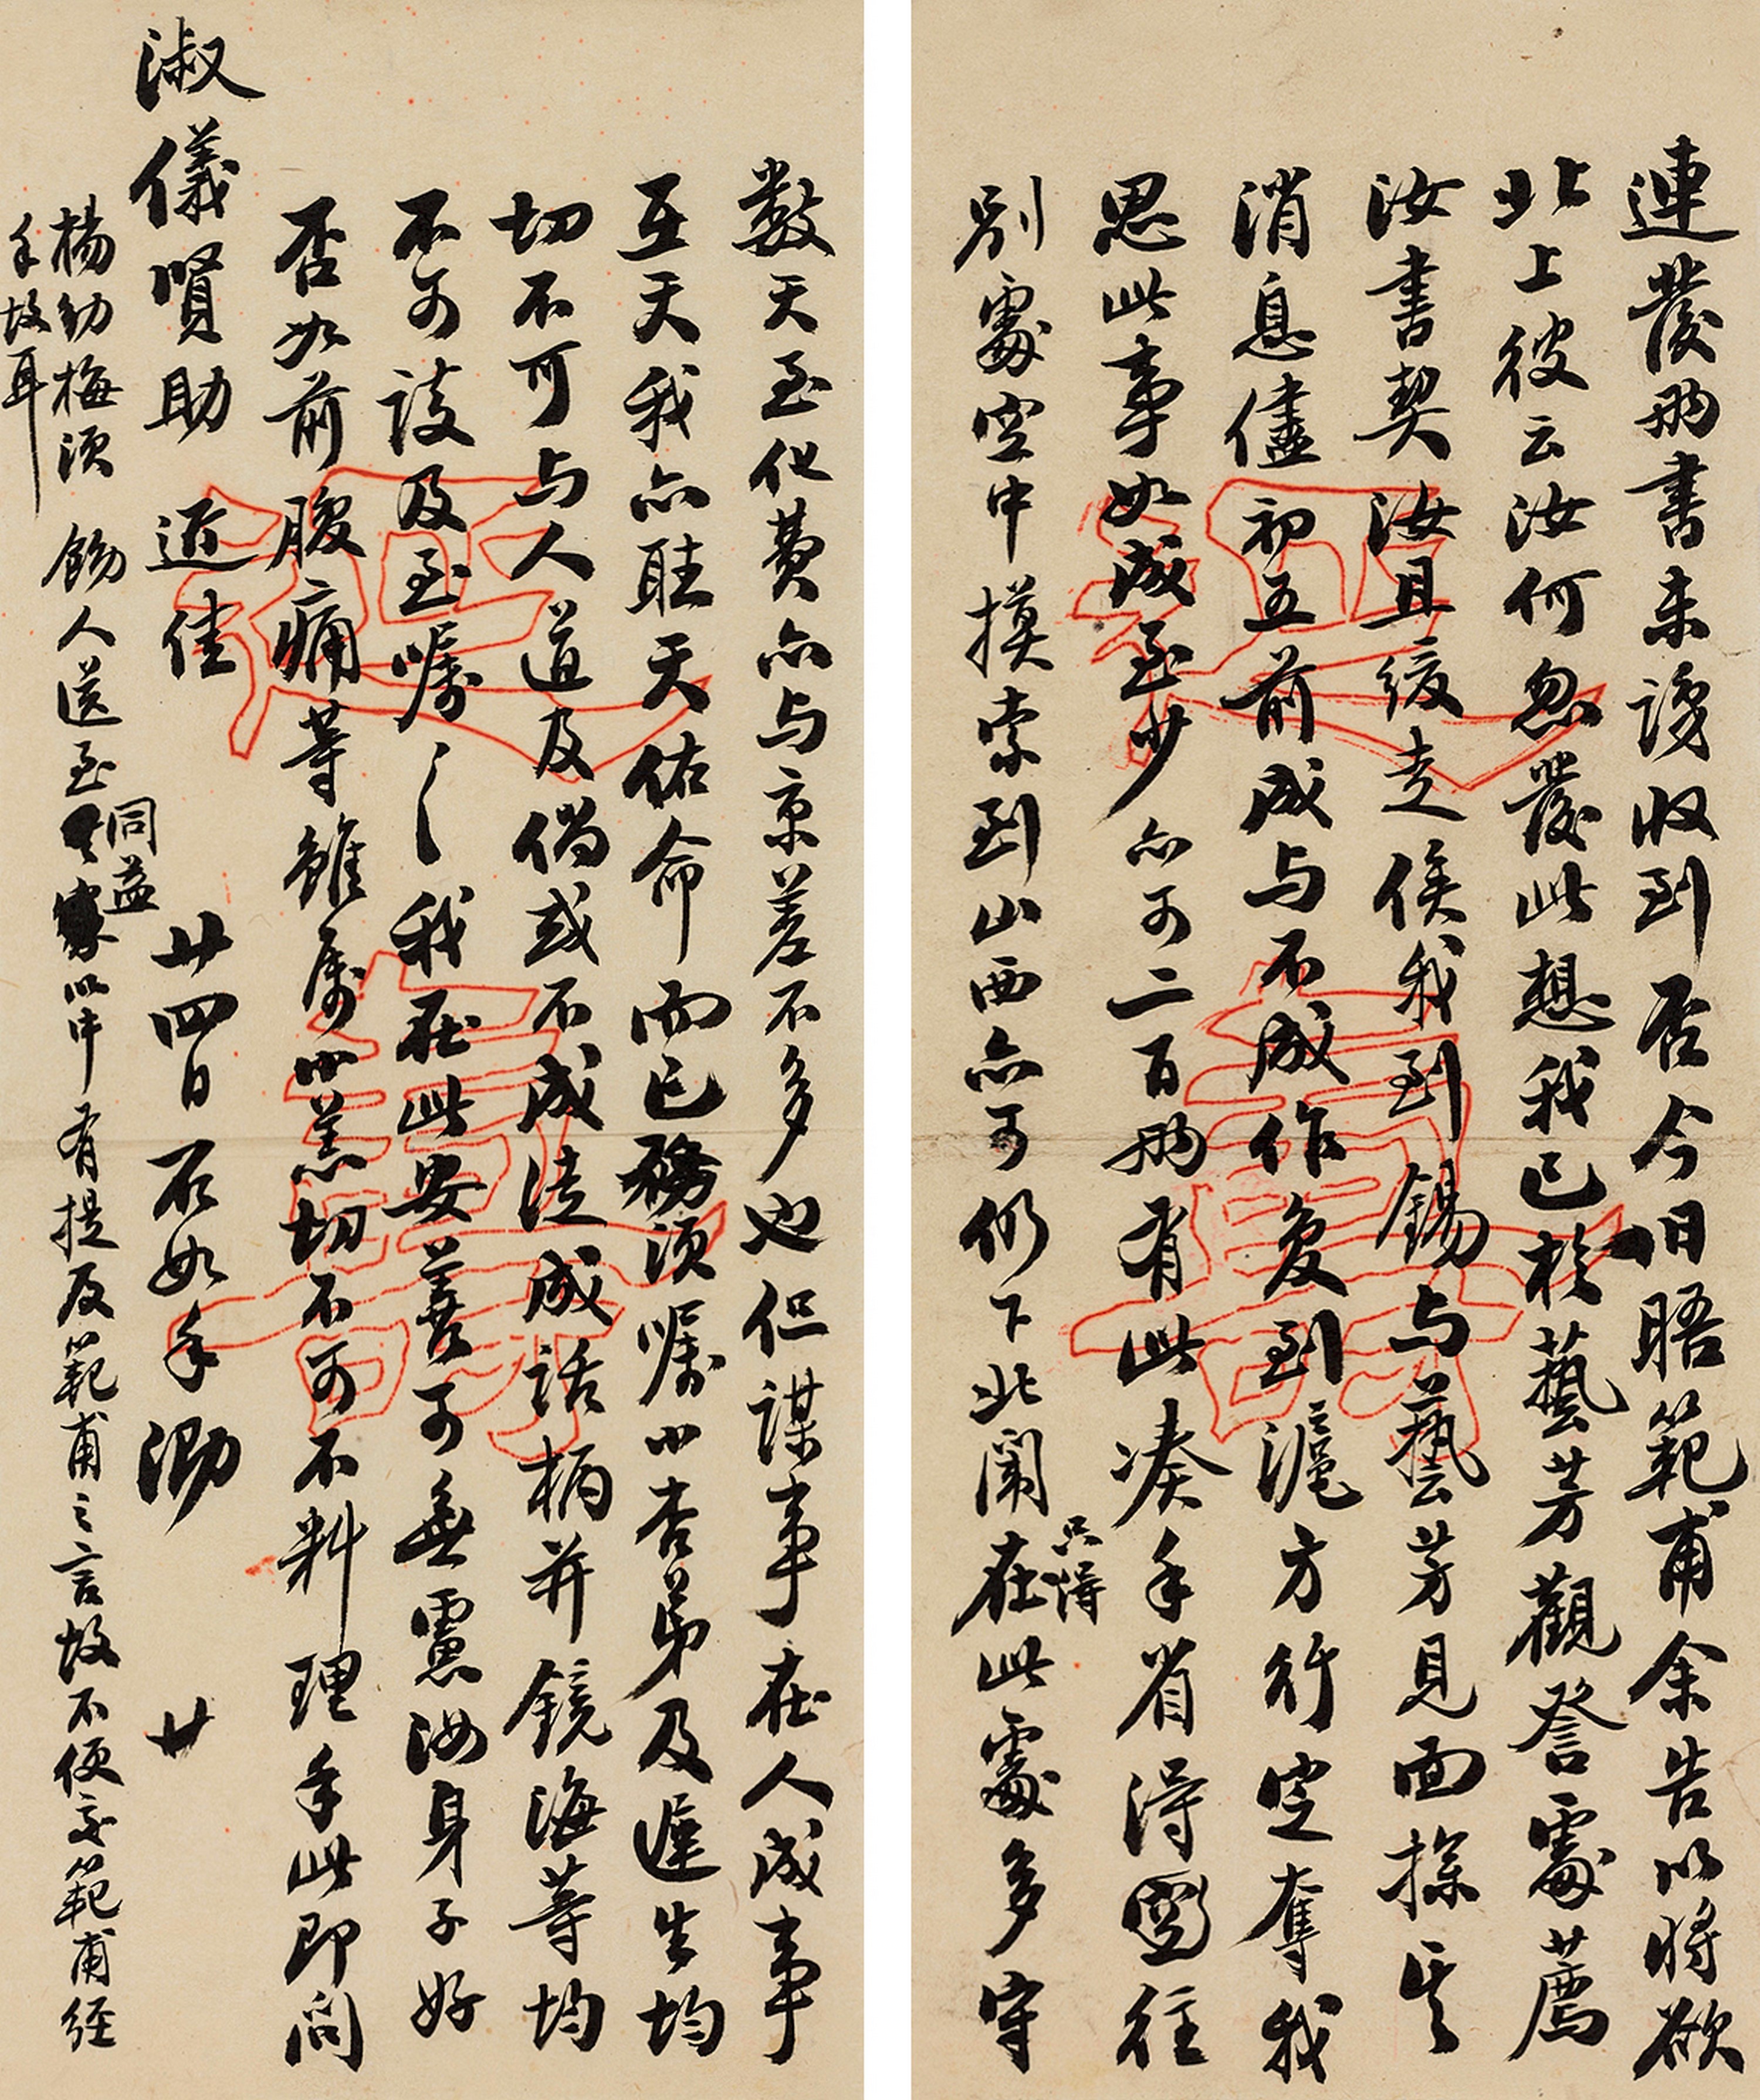 連發兩書未識收到否今日晤範甫余告以將欲
北上彼云汝何忽發此想我已於藝芳觀詧處薦
汝書契汝且緩走俟我到錫与藝芳見面探其
消息儘初五前成与不成作复到滬方行定奪我
思此事如成至少亦可二百兩有此湊手省得圖往
別處空中摸索到山西亦可仍下北闈在此處多守
只得
數天至化費亦与京差不多也但謀事在人成事
在天我亦聽天佑命而已務須嘱小杏弟及遲生均
切不可与人道及倘或不成徒成話柄并鏡海等均
不可談及至嘱〻我在此安善可無慮汝身子好
否如前腹痛等雖属小恙切不可不料理手此即問
淑儀賢助近佳 廿四日 石如手泐 廿
楊幼梅須飭人送至寓以中有提及範甫之言故不便交範甫經
同益
手故耳